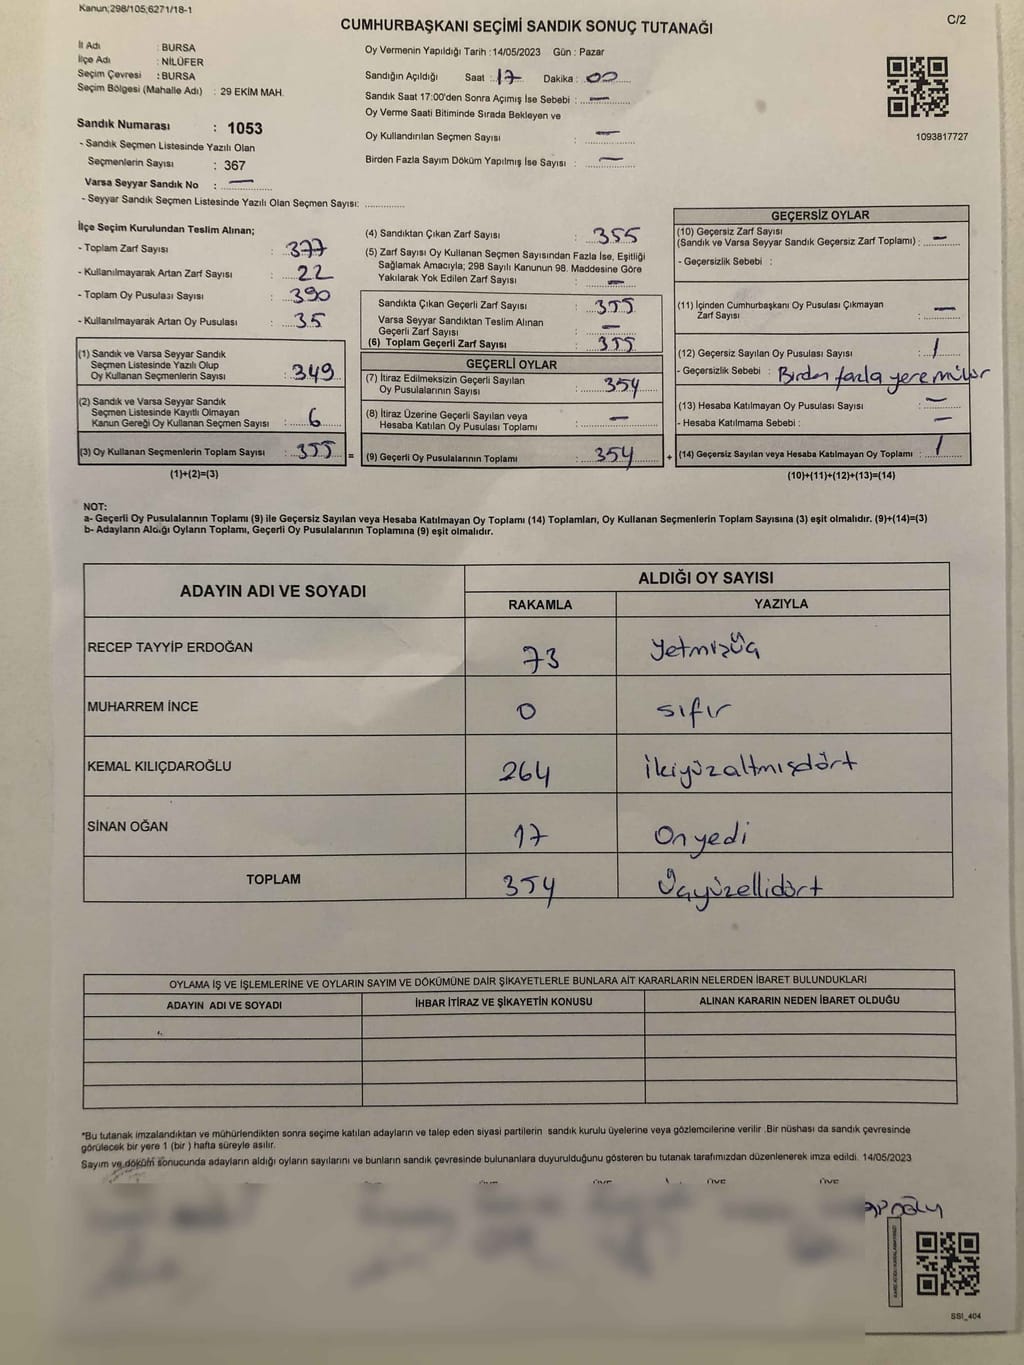 Kanun;298/105,6271/18-1
C/2
CUMHURBAŞKANI SEÇİMİ SANDIK SONUÇ TUTANAĞI
İl Adı : BURSA
İlçe Adı : NİLÜFER
Seçim Çevresi : BURSA
Seçim Bölgesi (Mahalle Adı) : 29 EKİM MAH.
Sandık Numarası : 1053
- Sandık Seçmen Listesinde Yazılı Olan
Seçmenlerin Sayısı : 367
Varsa Seyyar Sandık No : —
- Seyyar Sandık Seçmen Listesinde Yazılı Olan Seçmen Sayısı: ..............
Oy Vermenin Yapıldığı Tarih :14/05/2023 Gün : Pazar
Sandığın Açıldığı Saat : 17 Dakika : 00
Sandık Saat 17:00'den Sonra Açımış İse Sebebi : —
Oy Verme Saati Bitiminde Sırada Bekleyen ve
Oy Kullandırılan Seçmen Sayısı : —
Birden Fazla Sayım Döküm Yapılmış İse Sayısı : —
1093817727
İlçe Seçim Kurulundan Teslim Alınan;
- Toplam Zarf Sayısı : 377
- Kullanılmayarak Artan Zarf Sayısı : 22
- Toplam Oy Pusulası Sayısı : 390
- Kullanılmayarak Artan Oy Pusulası : 35
(1) Sandık ve Varsa Seyyar Sandık
Seçmen Listesinde Yazılı Olup
Oy Kullanan Seçmenlerin Sayısı : 349
(2) Sandık ve Varsa Seyyar Sandık
Seçmen Listesinde Kayıtlı Olmayan
Kanun Gereği Oy Kullanan Seçmen Sayısı : 6
(3) Oy Kullanan Seçmenlerin Toplam Sayısı : 355 =
(1)+(2)=(3)
(4) Sandıktan Çıkan Zarf Sayısı : 355
(5) Zarf Sayısı Oy Kullanan Seçmen Sayısından Fazla İse, Eşitliği
Sağlamak Amacıyla; 298 Sayılı Kanunun 98. Maddesine Göre
Yakılarak Yok Edilen Zarf Sayısı : —
Sandıkta Çıkan Geçerli Zarf Sayısı : 355
Varsa Seyyar Sandıktan Teslim Alınan
Geçerli Zarf Sayısı : —
(6) Toplam Geçerli Zarf Sayısı : 355
GEÇERLİ OYLAR
(7) İtiraz Edilmeksizin Geçerli Sayılan
Oy Pusulalarının Sayısı : 354
(8) İtiraz Üzerine Geçerli Sayılan veya
Hesaba Katılan Oy Pusulası Toplamı : —
(9) Geçerli Oy Pusulalarının Toplamı : 354 +
GEÇERSİZ OYLAR
(10) Geçersiz Zarf Sayısı
(Sandık ve Varsa Seyyar Sandık Geçersiz Zarf Toplamı) : —
- Geçersizlik Sebebi :
(11) İçinden Cumhurbaşkanı Oy Pusulası Çıkmayan
Zarf Sayısı : —
(12) Geçersiz Sayılan Oy Pusulası Sayısı : 1
- Geçersizlik Sebebi : Birden fazla yere mühür
(13) Hesaba Katılmayan Oy Pusulası Sayısı : —
- Hesaba Katılmama Sebebi : —
(14) Geçersiz Sayılan veya Hesaba Katılmayan Oy Toplamı : 1
(10)+(11)+(12)+(13)=(14)
NOT:
a- Geçerli Oy Pusulalarının Toplamı (9) ile Geçersiz Sayılan veya Hesaba Katılmayan Oy Toplamı (14) Toplamları, Oy Kullanan Seçmenlerin Toplam Sayısına (3) eşit olmalıdır. (9)+(14)=(3)
b- Adayların Aldığı Oyların Toplamı, Geçerli Oy Pusulalarının Toplamına (9) eşit olmalıdır.
ADAYIN ADI VE SOYADI
ALDIĞI OY SAYISI
RAKAMLA YAZIYLA
RECEP TAYYİP ERDOĞAN 73 Yetmişüç
MUHARREM İNCE 0 sıfır
KEMAL KILIÇDAROĞLU 264 İkiyüzaltmışdört
SİNAN OĞAN 17 Onyedi
TOPLAM 354 Üçyüzellidört
OYLAMA İŞ VE İŞLEMLERİNE VE OYLARIN SAYIM VE DÖKÜMÜNE DAİR ŞİKAYETLERLE BUNLARA AİT KARARLARIN NELERDEN İBARET BULUNDUKLARI
ADAYIN ADI VE SOYADI İHBAR İTİRAZ VE ŞİKAYETİN KONUSU ALINAN KARARIN NEDEN İBARET OLDUĞU
*Bu tutanak imzalandıktan ve mühürlendikten sonra seçime katılan adayların ve talep eden siyasi partilerin sandık kurulu üyelerine veya gözlemcilerine verilir .Bir nüshası da sandık çevresinde
görülecek bir yere 1 (bir ) hafta süreyle asılır.
Sayım ve döküm sonucunda adayların aldığı oyların sayılarını ve bunların sandık çevresinde bulunanlara duyurulduğunu gösteren bu tutanak tarafımızdan düzenlenerek imza edildi. 14/05/2023
SSI_404